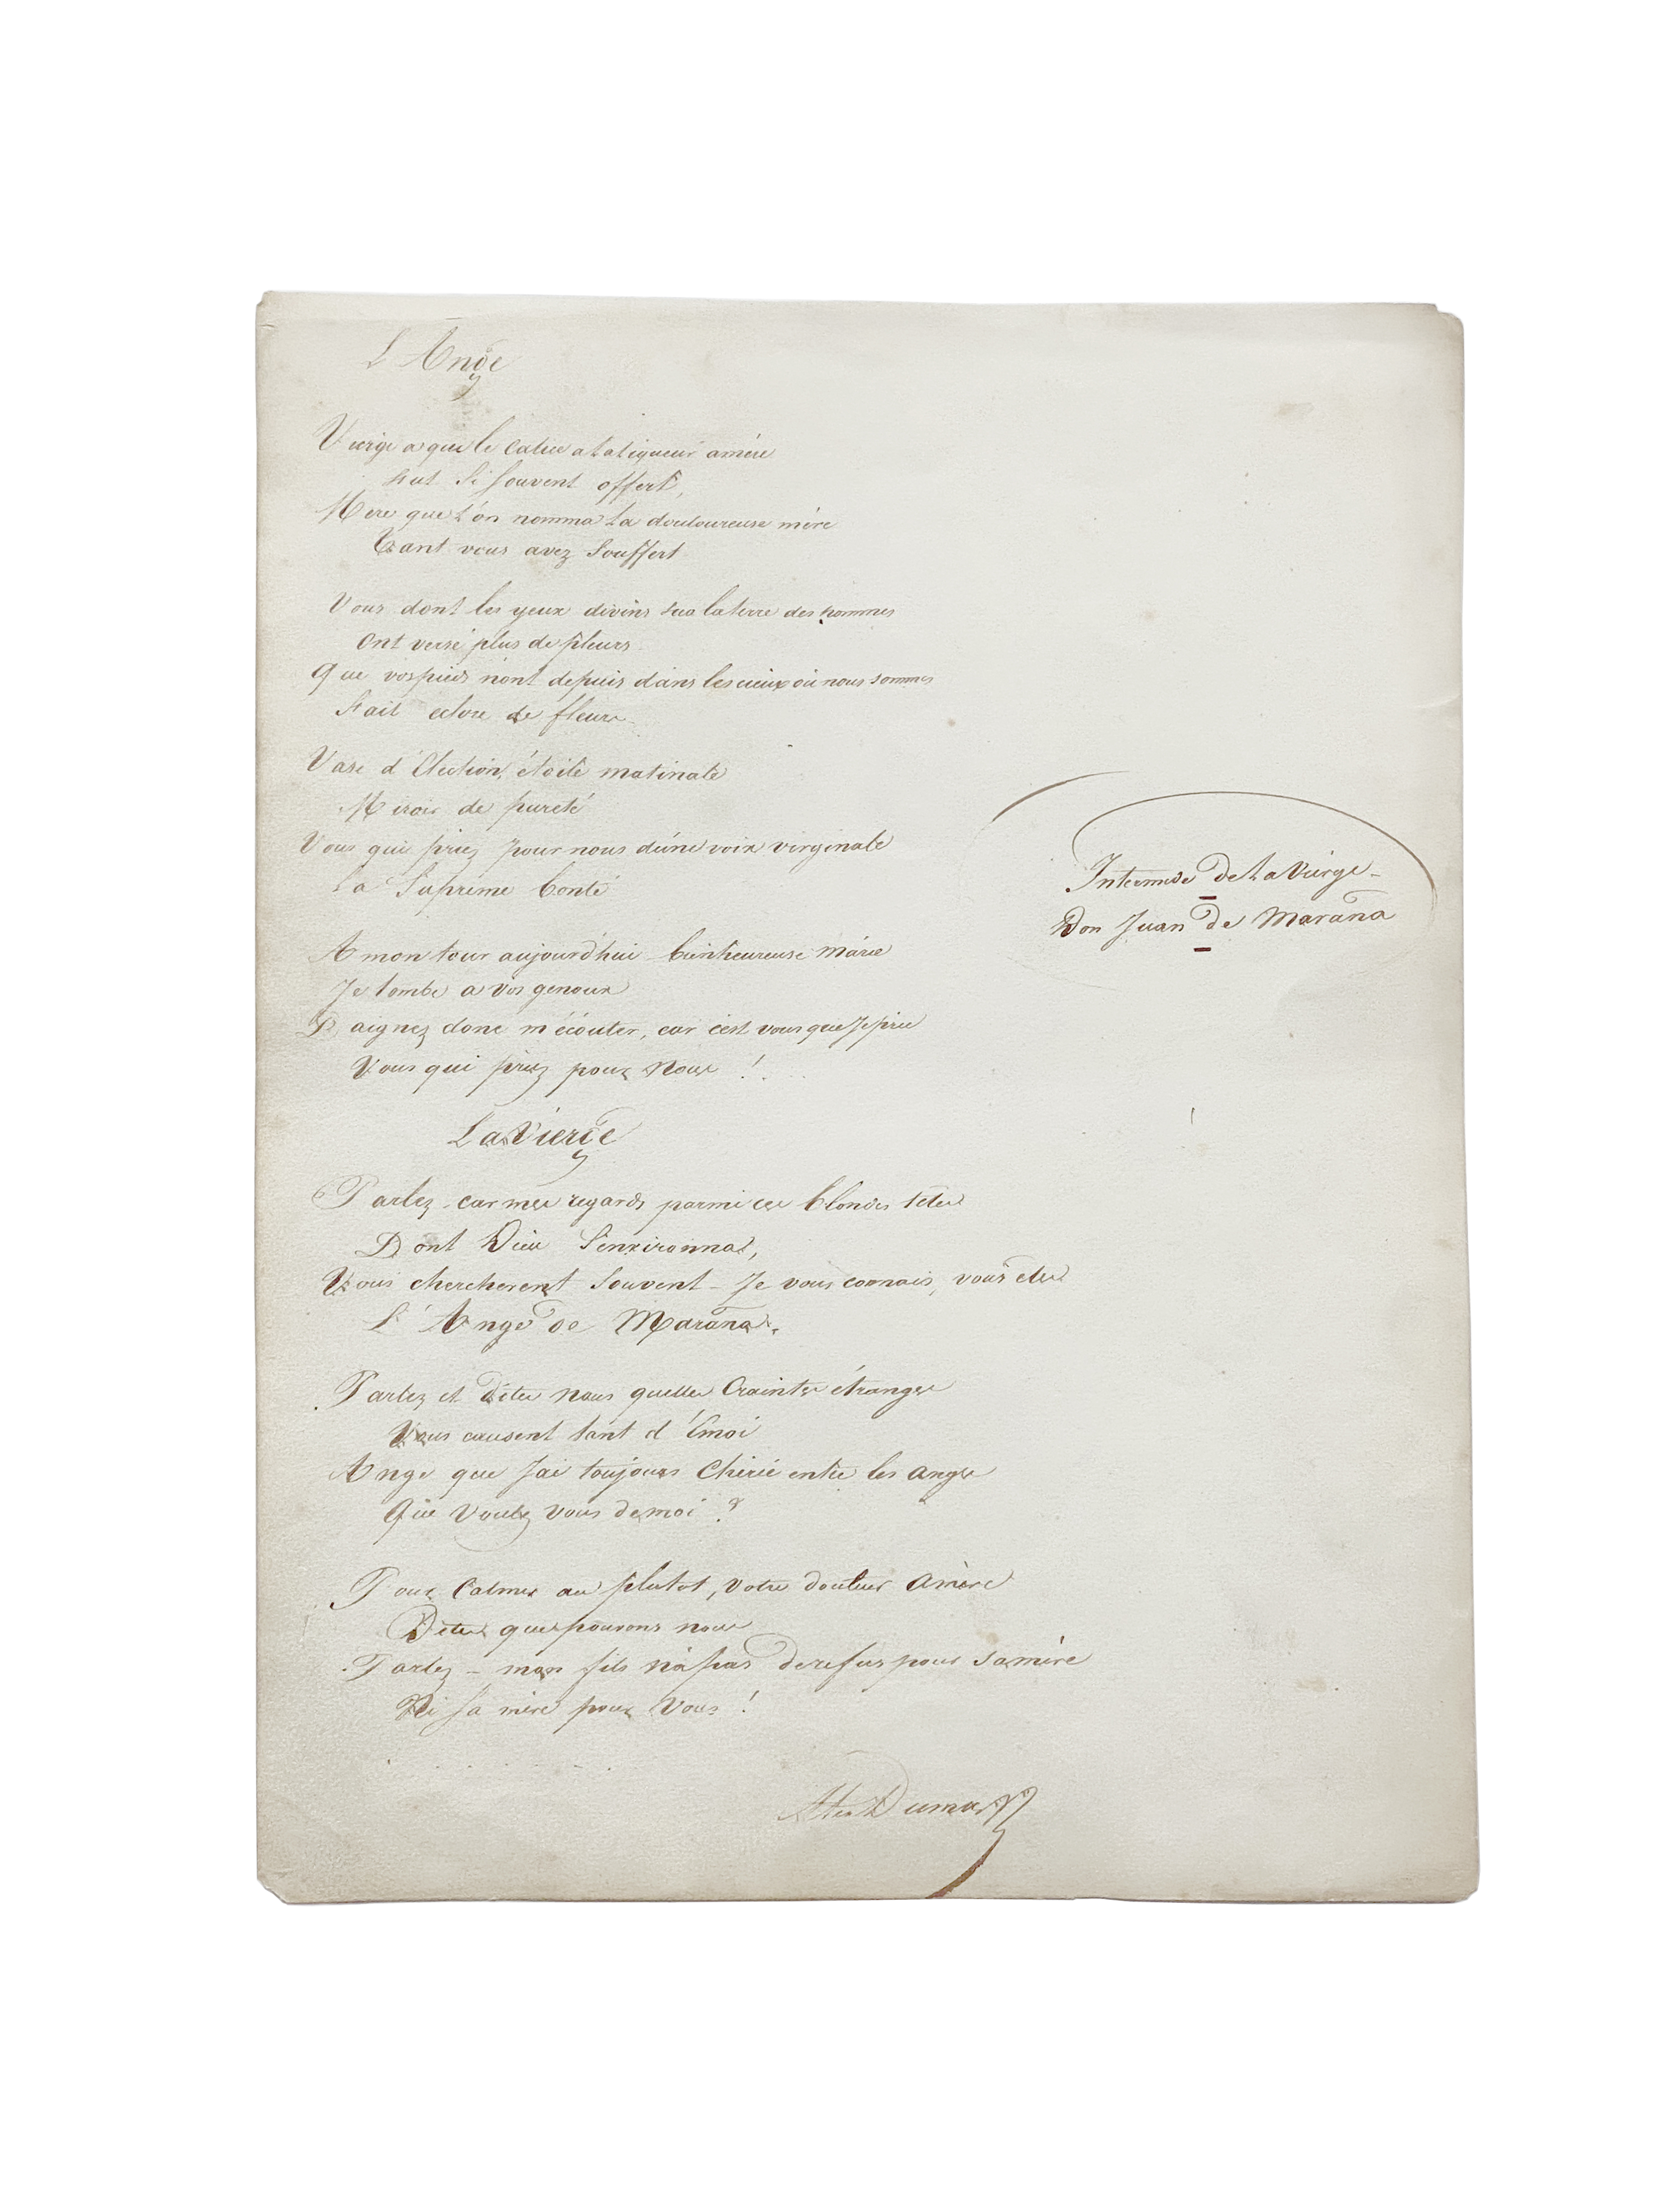 L'Ange
Vierge a qui le calice a la liqueur amère
Fut si souvent offert,
Mere que l'on nomma la douloureuse mère
Tant vous avez souffert
Vous dont les yeux divins sur la terre des hommes
Ont versé plus de pleurs
Que vos pieds n'ont depuis dans les cieux où nous sommes
Fait eclore de fleurs
Vase d'Election, étoile matinale
Miroir de pureté
Vous qui priez pour nous d'une voix virginale
La Suprême bonté
A mon tour aujourd'hui bienheureuse Marie
Je tombe a vos genoux
Daignez donc m'écouter, car c'est vous que Je prie
Vous qui priez pour nous !
Intermède de la Vierge -
Don Juan de Marana
La Vierge
Parlez car mes regards parmi ces blondes têtes
Dont Dieu s'environna,
Vous cherchèrent souvent - Je vous connais, vous etes
L'Ange de Marana.
Parlez et Dites nous quelles Craintes étranges
Vous causent tant d'Emoi
Ange que J'ai toujours Chéri entre les anges
Que voulez vous de moi ?
Pour Calmer au plutot, votre douleur amère
Dites que pouvons nous
Parlez - mon fils n'a pas de refus pour sa mère
Ni sa mère pour vous !
. . . . . . .
Alex Dumas